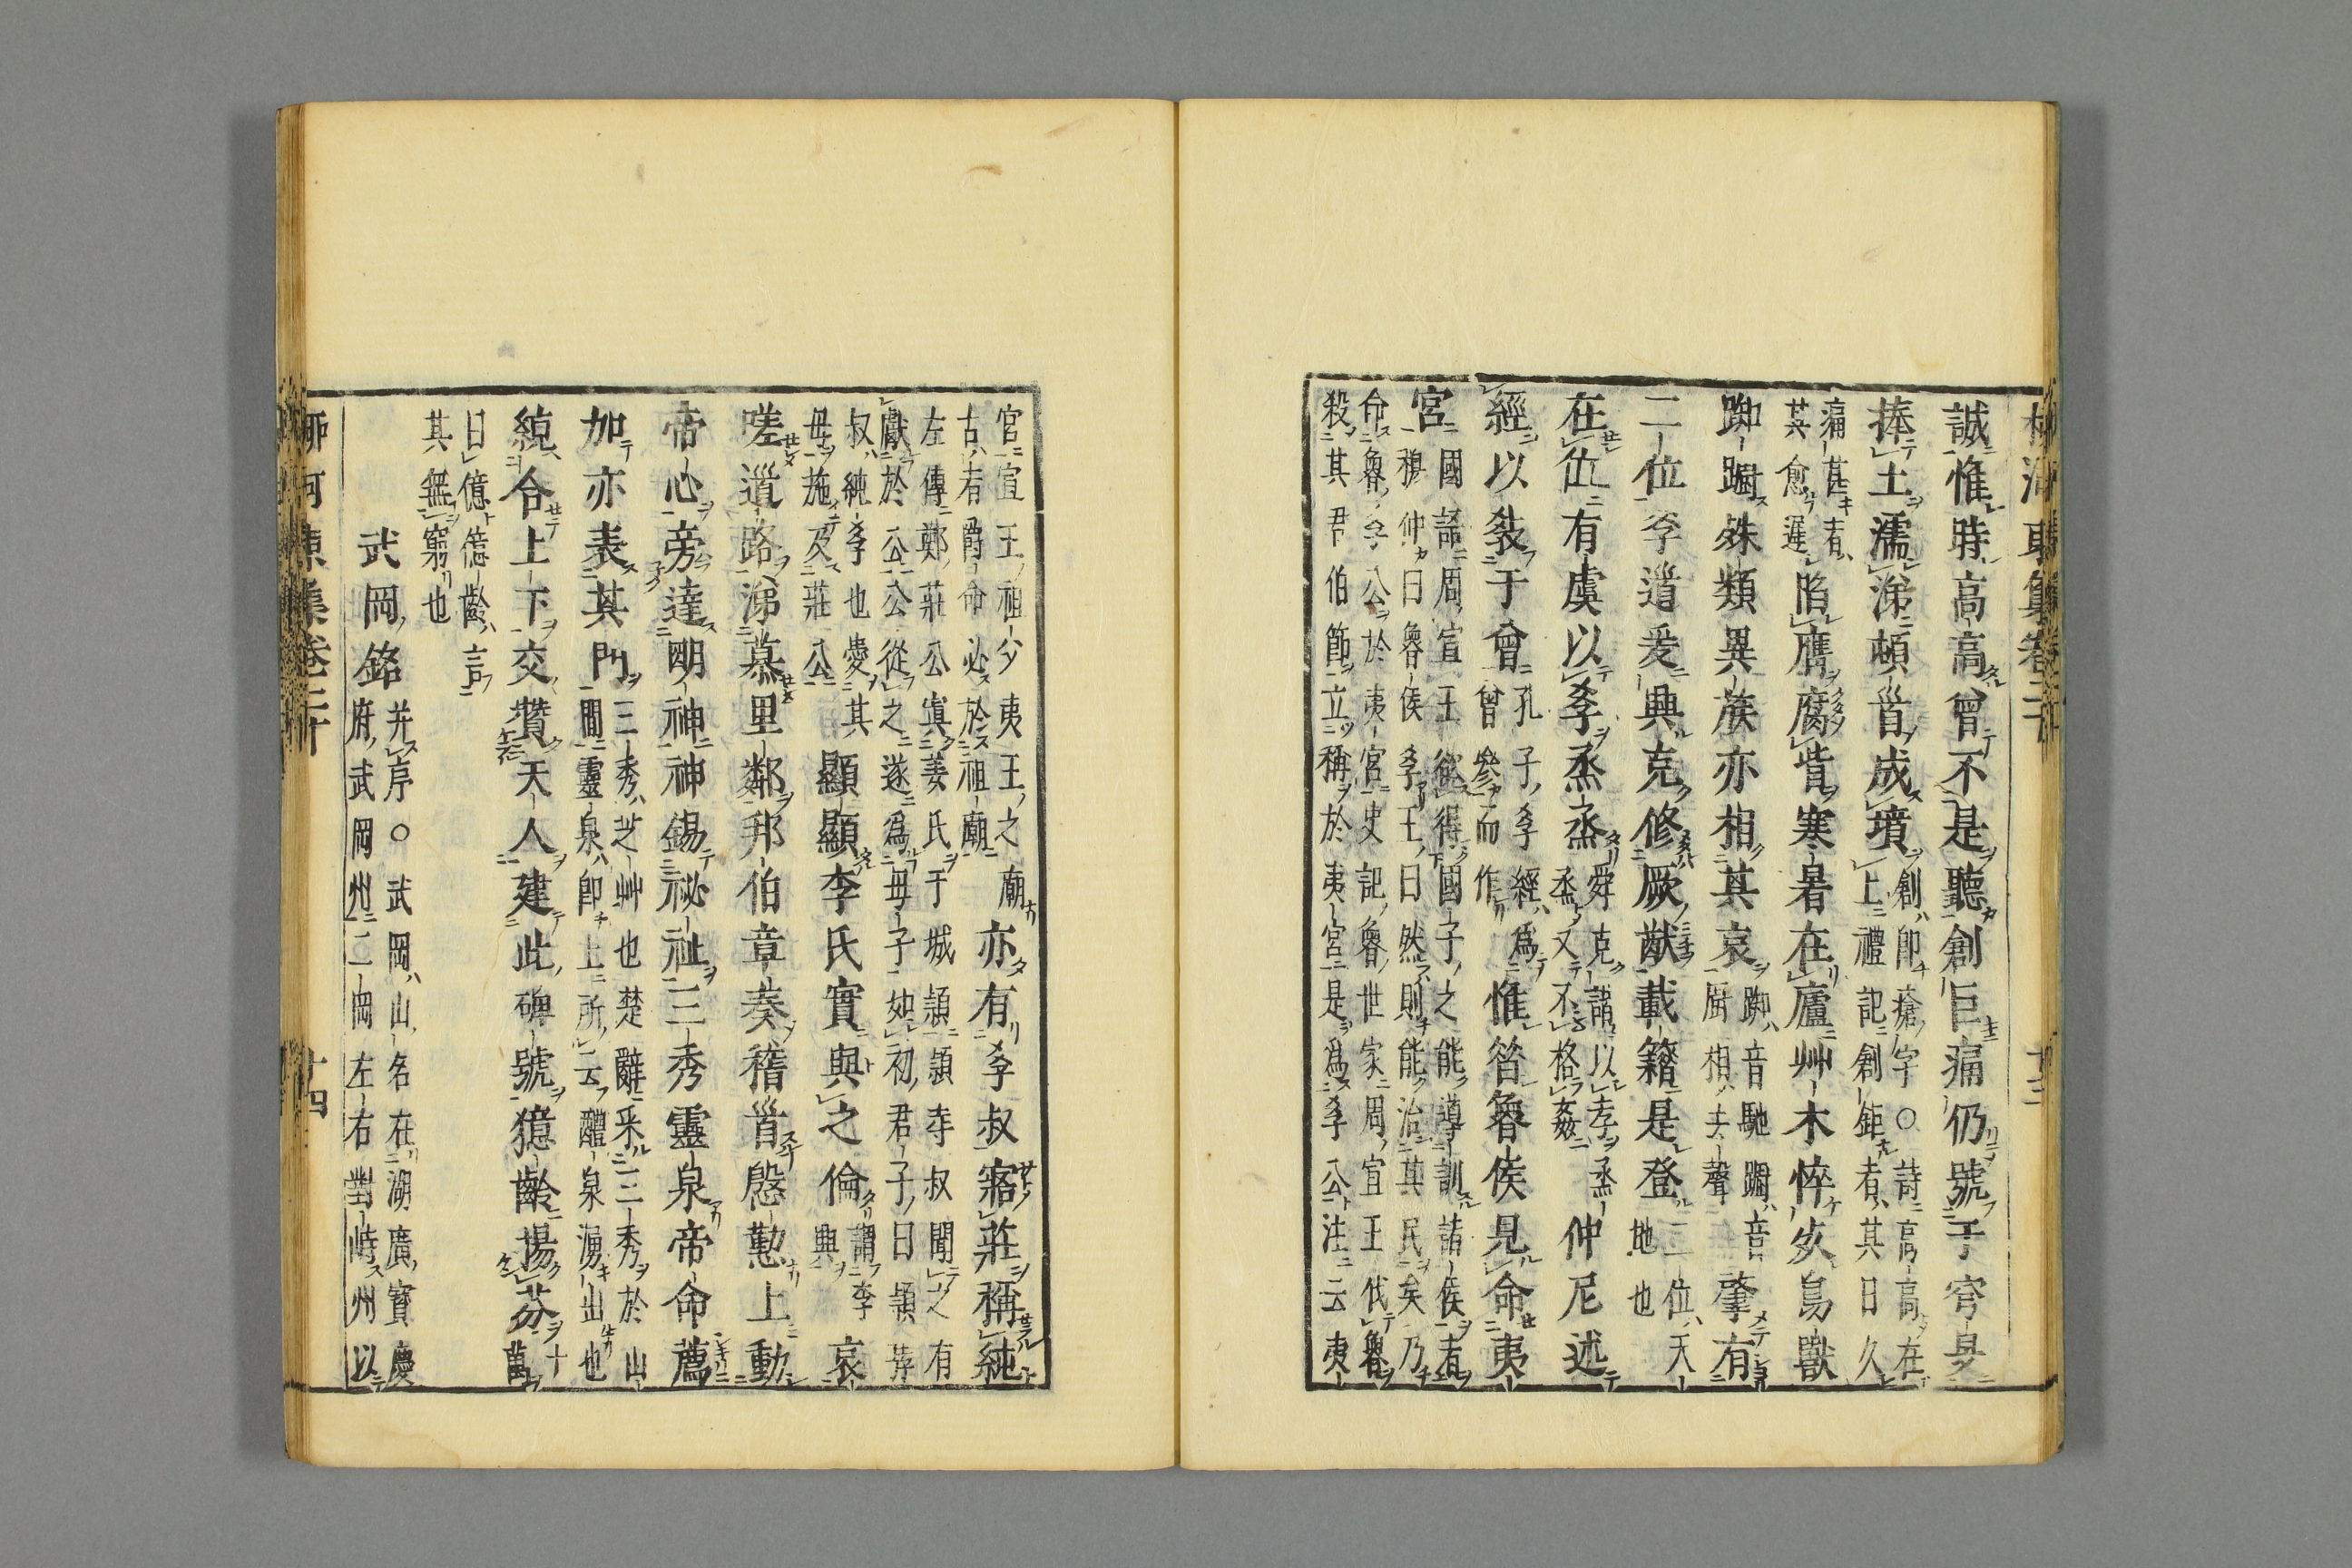 柳河東集卷二十　十三
誠惟時高高曾不是聽創巨痛仍號于穹旻
捧土濡涕頓首成墳
創即瘡字○詩高高在
上禮記創鉅者其日久
痛甚者
其愈遲
陷膺腐眥寒暑在廬艸木悴死鳥獸
踟躕殊類異族亦相其哀
踟音馳躕音
厨相去聲
肇有
二位孝道爰興克修厥猷載籍是登
二位天
地也
在古有虞以孝烝烝
舜克諧以孝烝
烝乂不格姦
仲尼述
經以教于曾
孔子孝經爲
曾參而作
惟昔魯侯見命夷
宮
國語周宣王欲得國子之能導訓諸侯者
穆仲曰魯侯孝王曰然則能治其民矣乃
命魯孝公於夷宮史記魯世家周宣王伐魯
殺其君伯節立稱於夷宮是爲孝公注云夷
宮宣王祖父夷王之廟
古者爵命必於祖廟
亦有孝叔寤莊稱純
左傳鄭莊公寘姜氏于城頴頴考叔聞之有
獻於公公從之遂爲母子如初君子曰頴考
叔純孝也愛其
母施及莊公
顯顯李氏實與之倫
謂李
興
哀
嗟道路涕慕里鄰邦伯章奏稽首慇懃上動
帝心旁達明神神錫祕祉三秀靈泉帝命薦
加亦表其門
三秀芝艸也楚辭采三秀於山
間靈泉即上所云醴泉湧出也
統合上下交贊天人建此碑號億齡揚芬
十
萬
曰億億齡言
其無窮也
武岡銘
并序○武岡山名在湖廣寶慶
府武岡州二岡左右對峙州以
柳河東集卷二十　十四